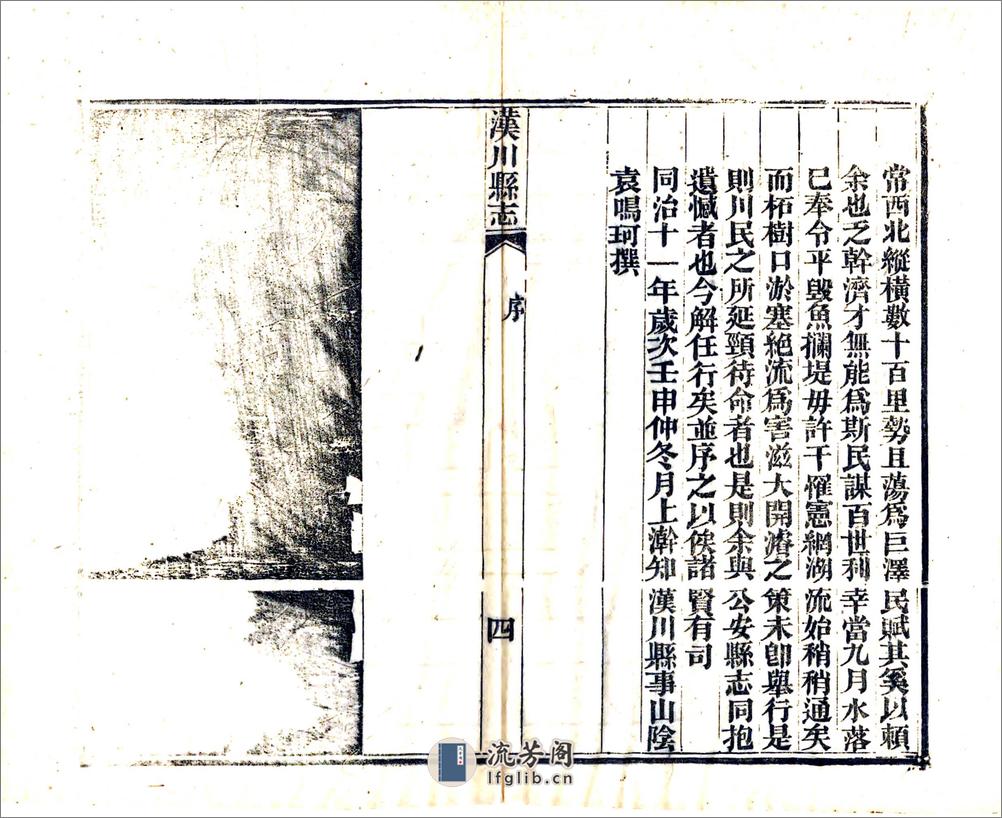 常西北縱橫數十百里勢且蕩爲巨澤民賦其奚以賴
余也乏幹濟才無能爲斯民謀百世利幸當九月水落
已奉令平毀魚攔堤毋許干罹憲網湖流始稍稍通矣
而柘樹口淤塞絕流爲害滋大開濬之策未卽舉行是
則川民之所延頸待命者也是則余與公安縣志同抱
遺憾者也今解任行矣並序之以俟諸賢有司
同治十一年歲次壬申仲冬月上澣知漢川縣事山陰
袁鳴珂撰
漢川縣志
序
四
流芳阁
lfglib.cn